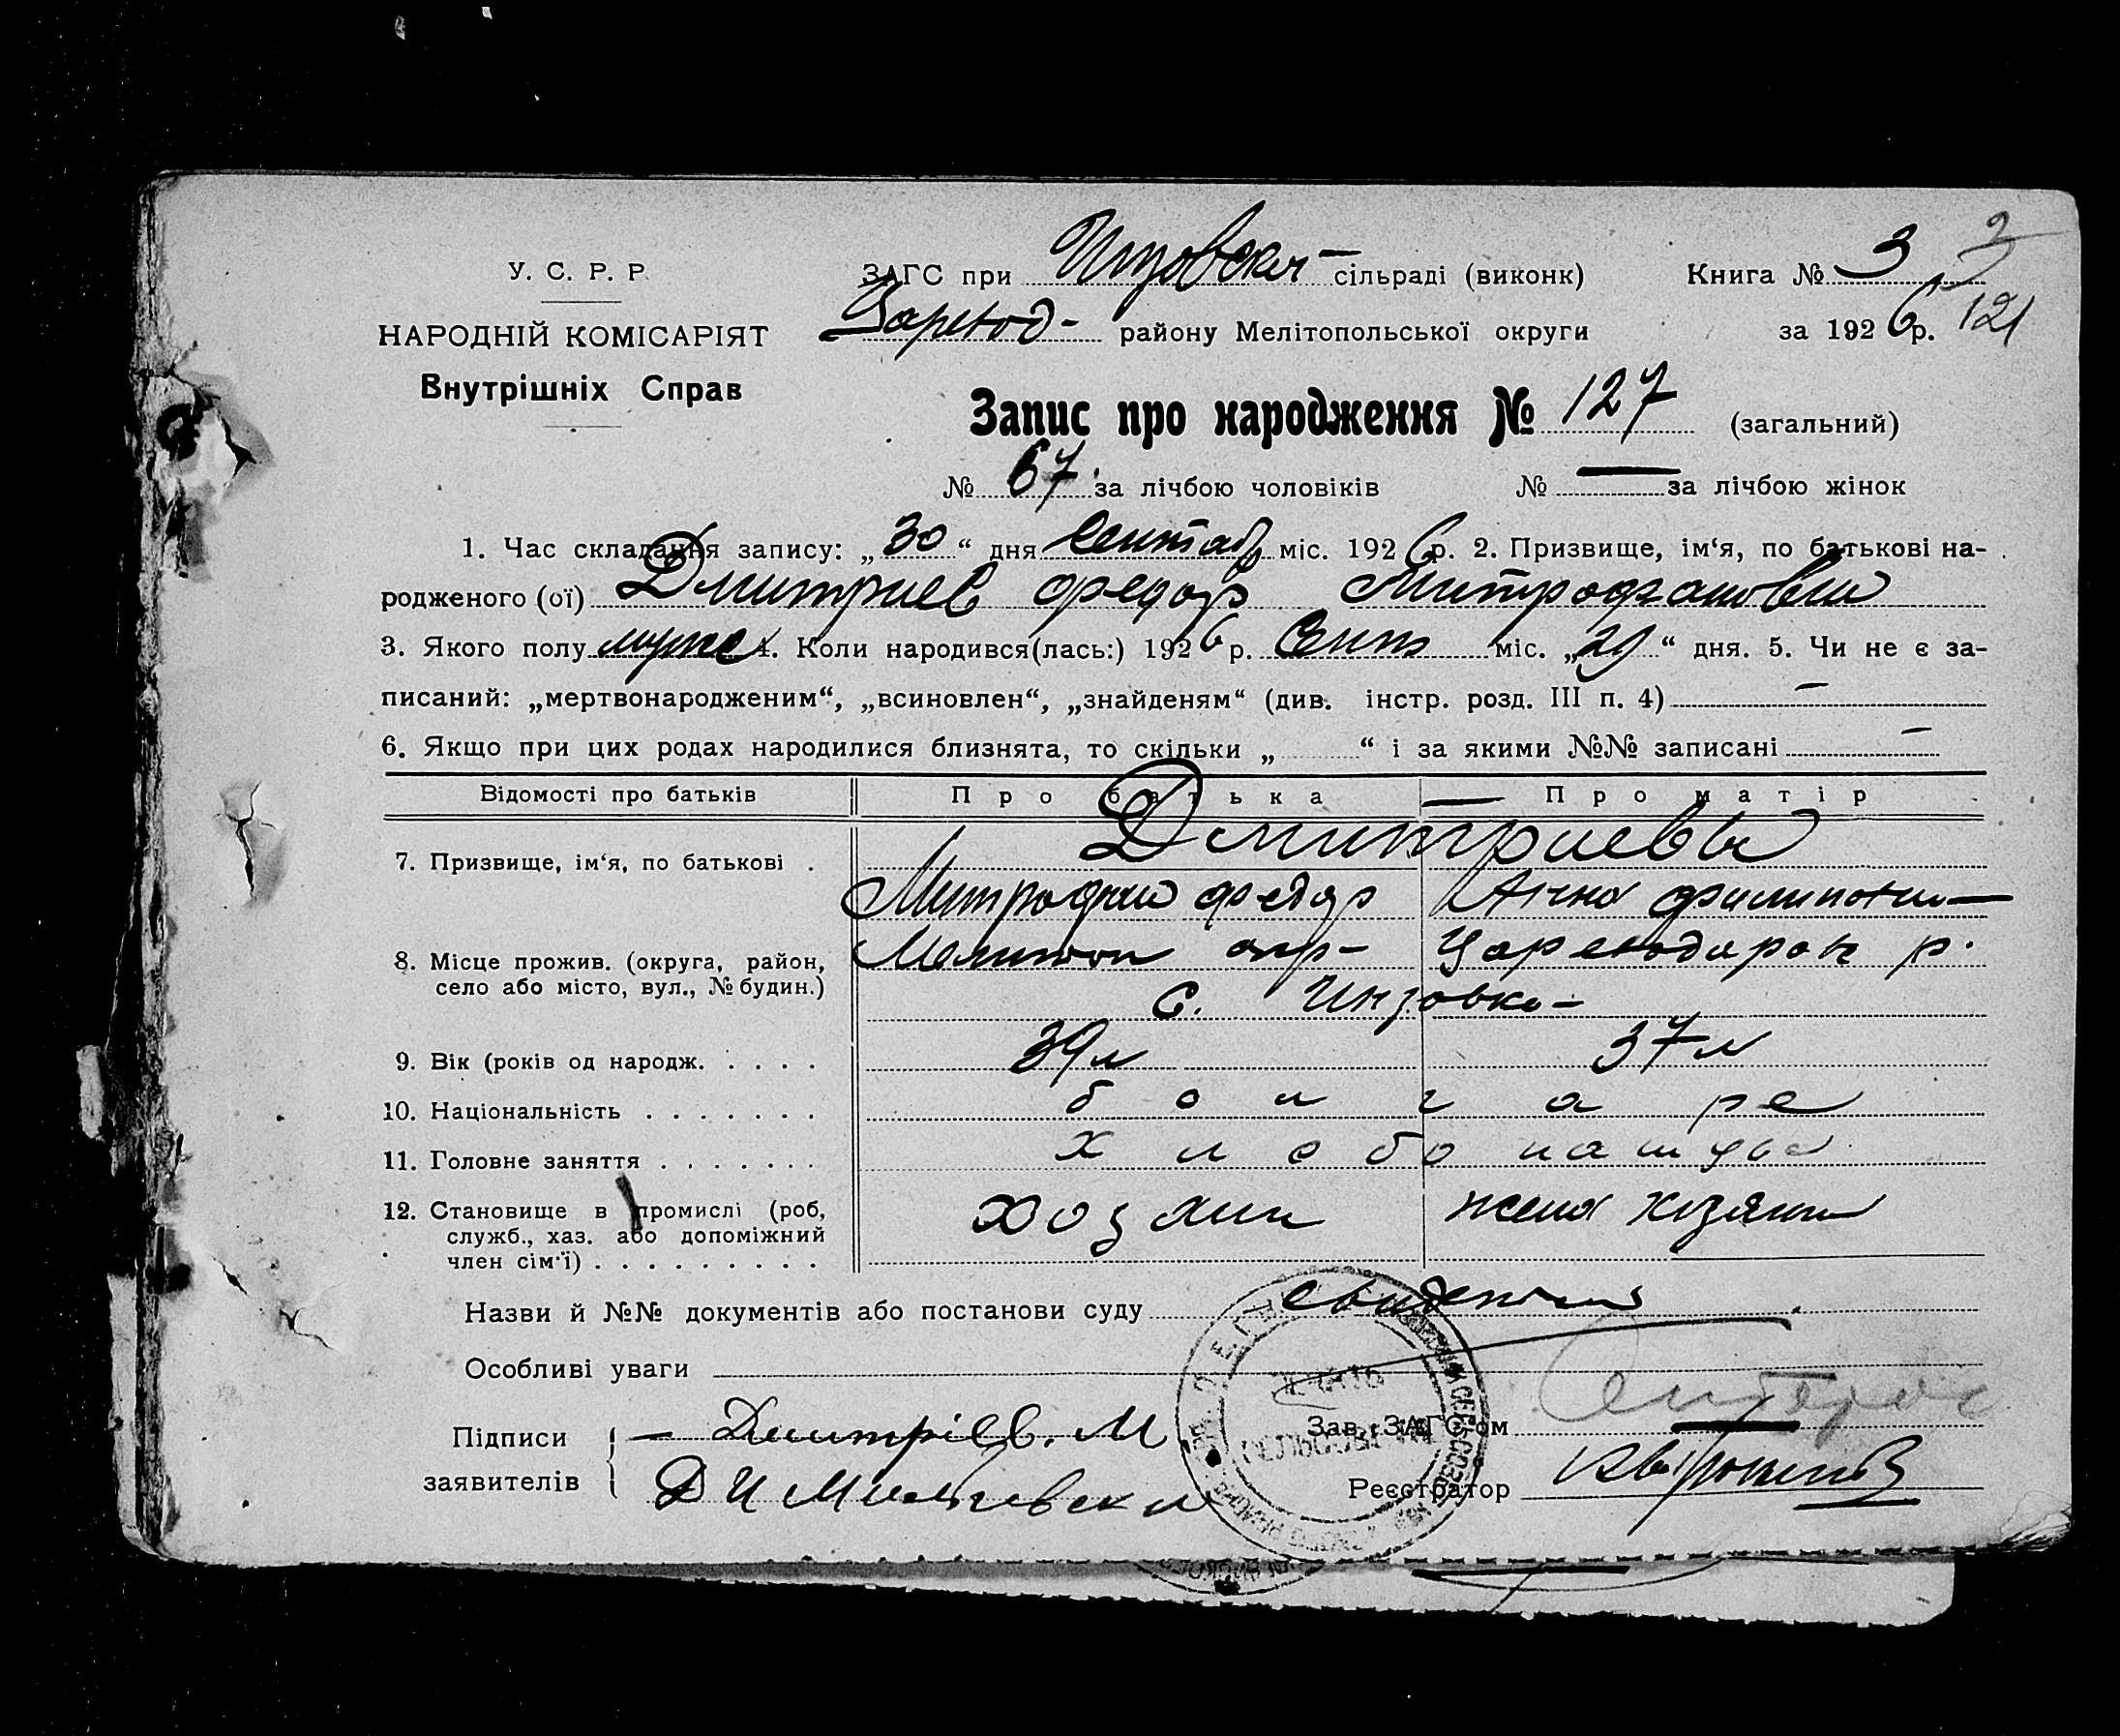 У. С. Р. Р.
НАРОДНІЙ КОМІСАРІЯТ
Внутрішніх Справ
ЗАГС при Инзовском сільраді (виконк) Книга № 3
Царевод- району Мелітопольської округи за 1926 р. 121
Запис про народження № 127 (загальний)
№ 67 за лічбою чоловіків № — за лічбою жінок
1. Час складання запису: „30“ дня Сентяб міс. 1926 р. 2. Призвище, ім‘я, по батькові на-
родженого (ої) Дмитриев Федор Митрофанович
3. Якого полу мужс 4. Коли народився(лась:) 1926 р. Сент міс. „29“ дня. 5. Чи не є за-
писаний: „мертвонародженим“, „всиновлен“, „знайденям“ (див. інстр. розд. III п. 4) —
6. Якщо при цих родах народилися близнята, то скільки „ “ і за якими №№ записані —
Відомості про батьків Про батька Про матір
7. Призвище, ім‘я, по батькові . Дмитриевы
Митрофан Федор Анна Филипов
8. Місце прожив. (округа, район, Мелитоп окр- Цареводаров р.
село або місто, вул., № будин.) с. Инзовка-
9. Вік (років од народж. . . . . 39 л 37 л
10. Національність . . . . . . . болгаре
11. Головне заняття . . . . . . . хлебопашцы
12. Становище в промислі (роб, хозяин жена хозяина
служб., хаз. або допоміжний
член сім‘ї) . . . . . . . . .
Назви й №№ документів або постанови суду
Особливі уваги
Підписи — Дмитріев. М. Зав. ЗАГС‘ом
заявителів Д И Реєстратор